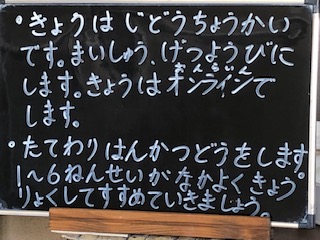 ・きょうはじどうちょうかい
です。まいしゅう、げつようびに
します。きょうはオンラインで
おんらいん
します。
・たてわりはんかつどうをします。
1～6ねんせいがなかよくきょう
りょくしてすすめていきましょう。